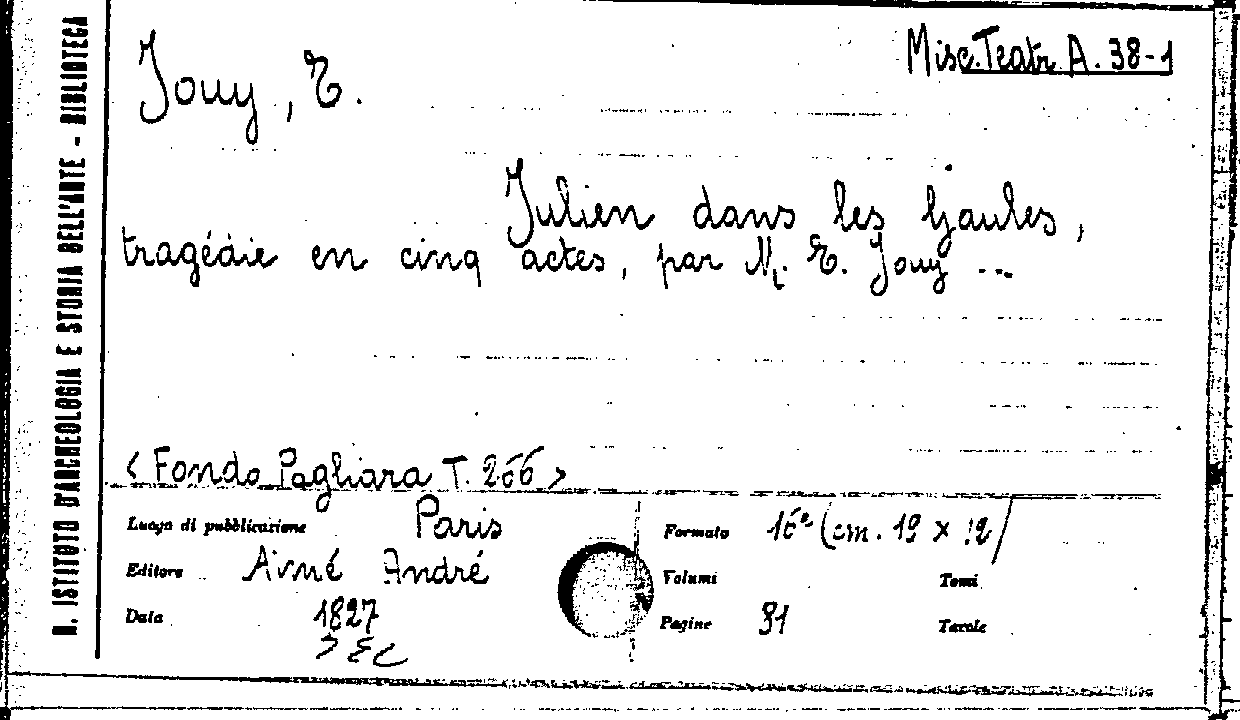 R. ISTITUTO D'ARCHEOLOGIA E STORIA DELL'ARTE - BIBLIOTECA
Misc. Teatr. A. 38-1
Jouy, E.
Julien dans les Gaules,
tragédie en cinq actes, par M. E. Jouy ...
< Fondo Pagliara T. 266 >
Luogo di pubblicazione Paris
Editore Aimé André
Data 1827
Formato 16° (cm. 19 x 12)
Volumi Tomi
Pagine 91 Tavole